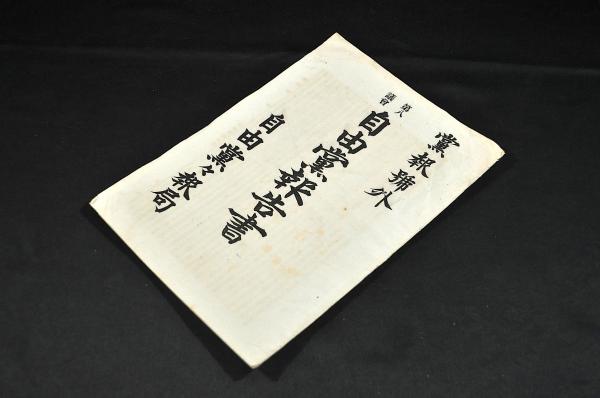 黨報號外
第八議會
自由黨報告書
自由黨々報局